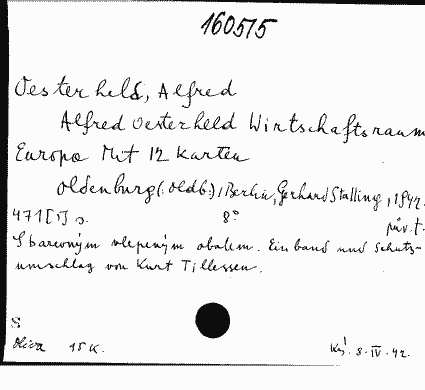 160515
Oesterheld, Alfred
Alfred Oesterheld Wirtschaftsraum
Europa Mit 12 Karten
Oldenburg (: Oldb.), Berlin, Gerhard Stalling, 1942.
471 [1] s. 8° pův. t.
S barevným vlepeným obalem. Einband und Schutz-
umschlag von Kurt Tillessen.
S
Oliva 15 K. 8. IV. 42.